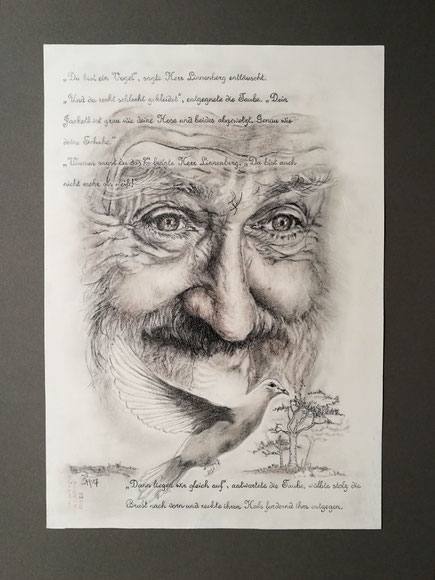 „Du bist ein Vogel", sagte Herr Linnenberg enttäuscht.
„Und du recht schlecht gekleidet", entgegnete die Taube. „Dein
ist grau wie deine Hose und beides abgewetzt. Genau wie
deine Schuhe."
„Warum sagst du das?" fragte Herr Linnenberg. „Du bist auch
nicht mehr als ich!"
„Dann liegen wir gleich auf", antwortete die Taube, wölbte stolz die
Brust nach vorn und reckte ihren Hals fordernd ihm entgegen.